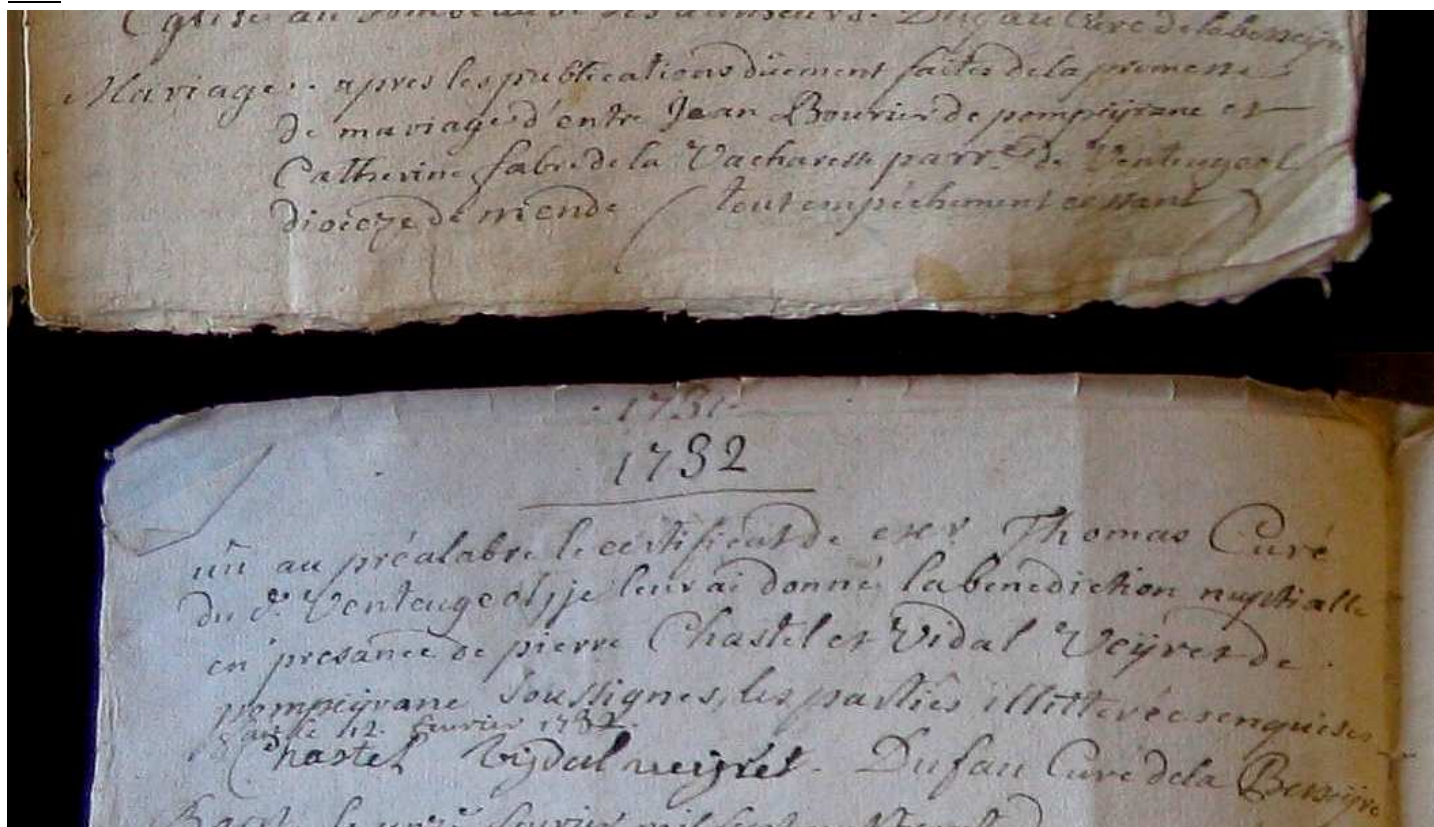 Eglise au tombeau de ses ancêtres. Dufau Curé de la besseyre
Mariage: apres les publications düement faites de la promesse
de mariage d'entre Jean Bourier de pompeÿrane et
Catherine fabre de la Vacharesse parr.e de Venteugeol
dioceze de mende ( tout empéchement cessant )
1731
1732
vû au préalabre le certificat de Thomas Curé
du d. Venteugeol, je leur ai donné la benediction nuptialle
en présance de pierre Chastel et Vidal Veÿret de
pompeÿrane soussignes, les parties illitterées enquises
12. fevrier 1732.
Chastel Vidal veiret. Dufau Curé de la Besseÿre